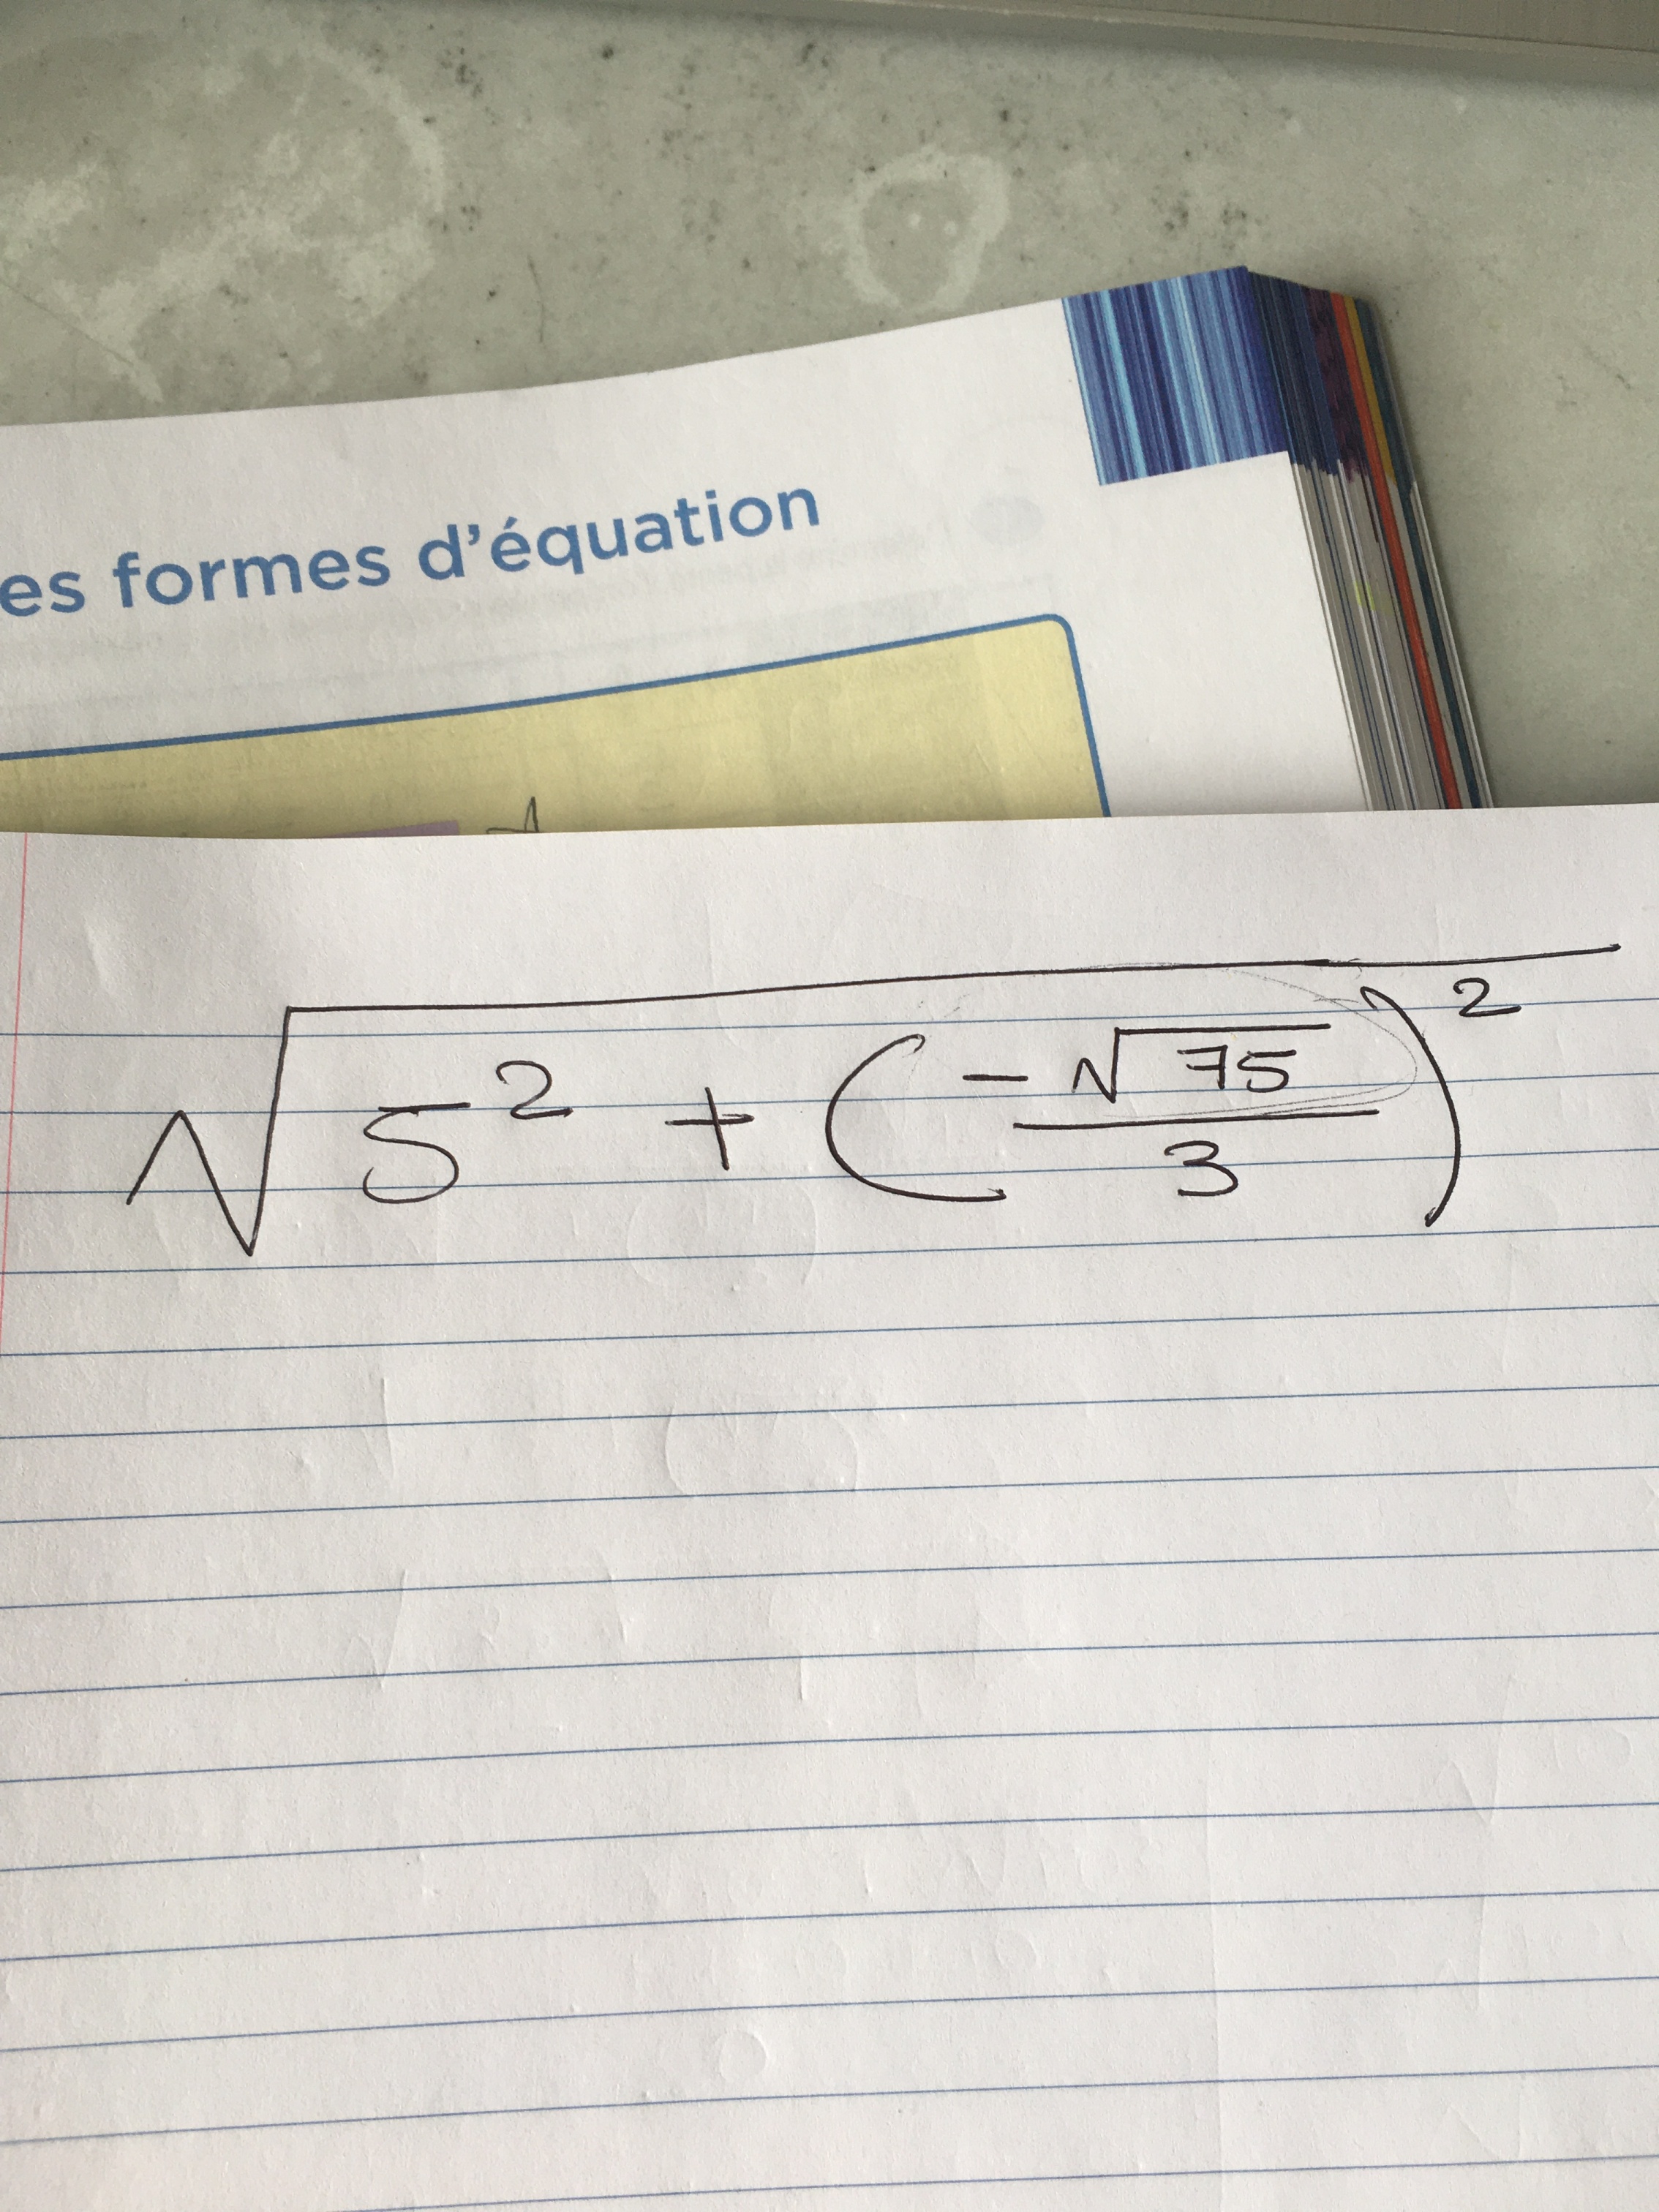 es formes d'équation
√(5² + (-√75/3)²)